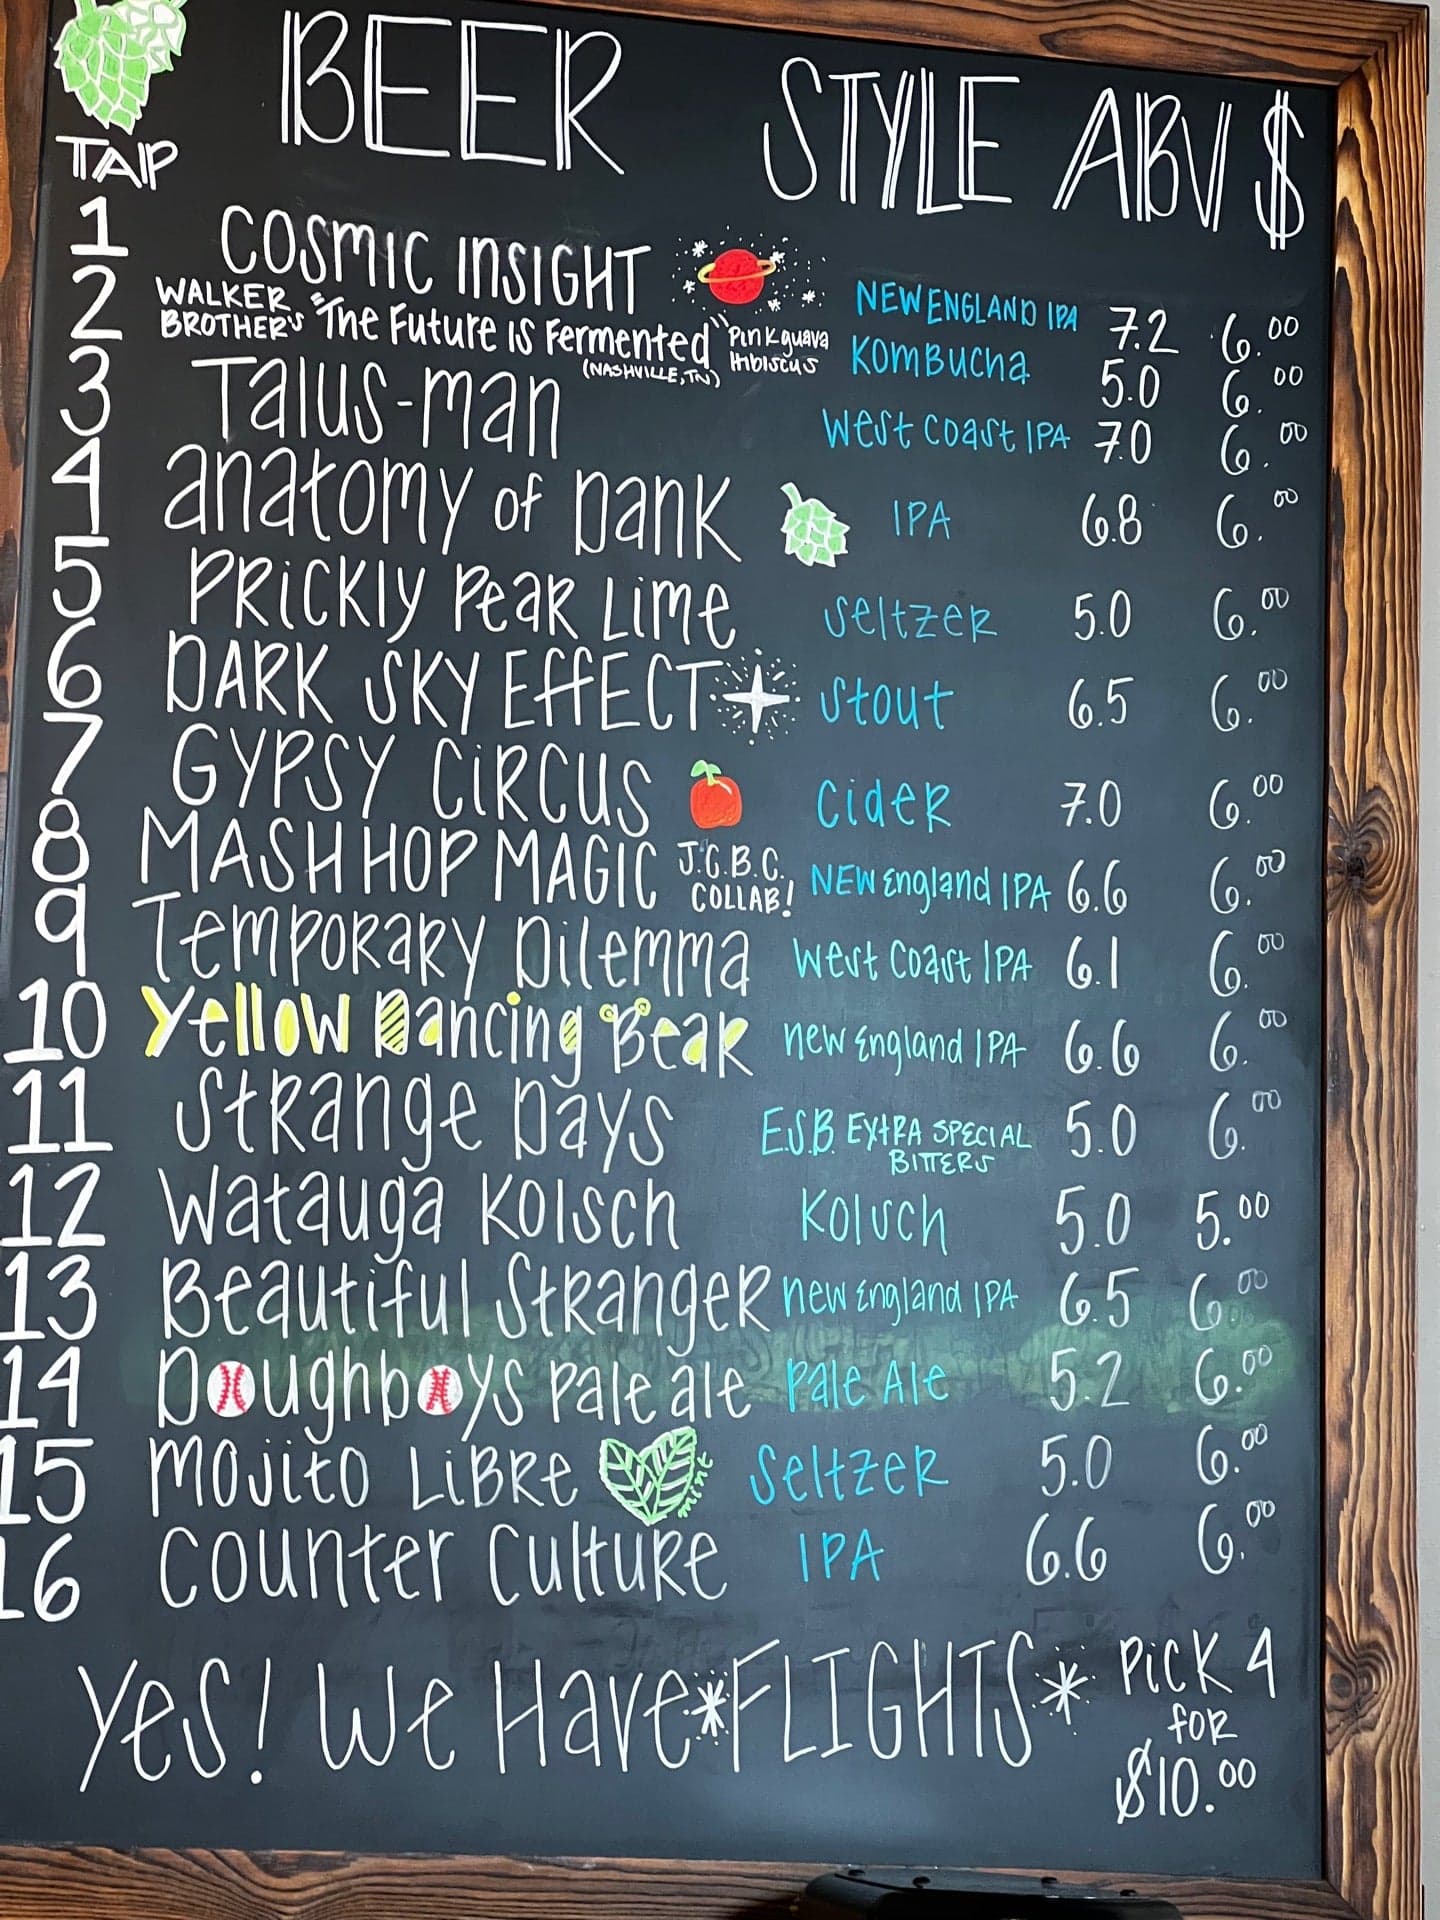 BEER STYLE ABV $
TAP
1 COSMIC INSIGHT NEW ENGLAND IPA 7.2 6.00
2 WALKER BROTHER'S "The Future is Fermented" (NASHVILLE, TN) Pink guava Hibiscus Kombucha 5.0 6.00
3 Talus-man West Coast IPA 7.0 6.00
4 anatomy of Dank IPA 6.8 6.00
5 PRICKLY Pear Lime Seltzer 5.0 6.00
6 DARK SKY EffECT Stout 6.5 6.00
7 GYPSY CIRCUS Cider 7.0 6.00
8 MASH HOP MAGIC J.C.B.C. COLLAB! NEW England IPA 6.6 6.00
9 Temporary Dilemma West Coast IPA 6.1 6.00
10 Yellow Dancing Bear new England IPA 6.6 6.00
11 Strange Days E.S.B. EXtRA SPECIAL BITTERS 5.0 6.00
12 Watauga Kolsch Kolsch 5.0 5.00
13 Beautiful Stranger new England IPA 6.5 6.00
14 Doughboys Pale ale Pale Ale 5.2 6.00
15 Mojito Libre mint Seltzer 5.0 6.00
16 Counter Culture IPA 6.6 6.00
Yes! We Have *FLIGHTS* PiCK 4
for
$10.00